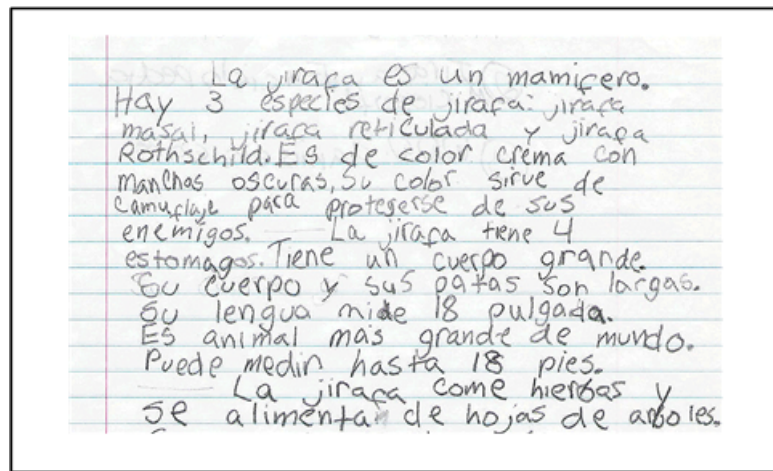 La jirafa es un mamifero.
Hay 3 especies de jirafa: jirafa
masai, jirafa reticulada y jirafa
Rothschild. Es de color crema con
manchas oscuras, su color sirve de
camuflaje para protegerse de sus
enemigos. La jirafa tiene 4
estomagos. Tiene un cuerpo grande.
Su cuerpo y sus patas son largas.
Su lengua mide 18 pulgada.
Es animal mas grande de mundo.
Puede medir hasta 18 pies.
La jirafa come hierbas y
se alimenta de hojas de arboles.